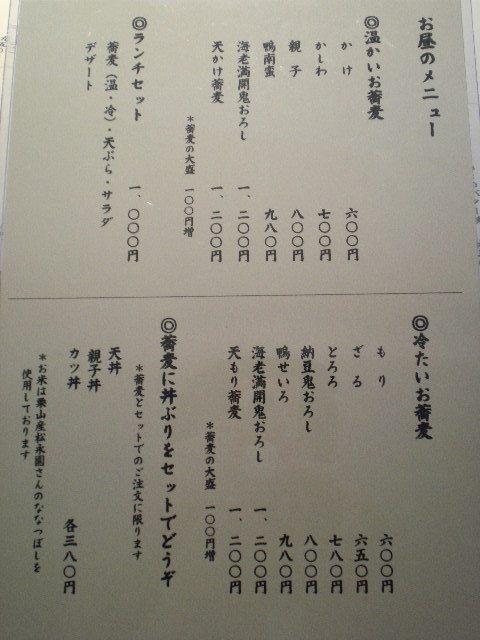 お昼のメニュー
◎温かいお蕎麦
かけ 六〇〇円
かしわ 七〇〇円
親子 八〇〇円
鴨南蛮 九八〇円
海老満開鬼おろし 一、二〇〇円
天かけ蕎麦 一、二〇〇円
＊蕎麦の大盛 一〇〇円増
◎ランチセット 一、〇〇〇円
蕎麦（温・冷）・天ぷら・サラダ
デザート
◎冷たいお蕎麦
もり 六〇〇円
ざる 六五〇円
とろろ 七八〇円
納豆鬼おろし 八〇〇円
鴨せいろ 九八〇円
海老満開鬼おろし 一、二〇〇円
天もり蕎麦 一、二〇〇円
＊蕎麦の大盛 一〇〇円増
◎蕎麦に丼ぶりをセットでどうぞ
＊蕎麦とセットでのご注文に限ります
天丼
親子丼
カツ丼 各三八〇円
＊お米は栗山産松永園さんのななつぼしを
使用しております